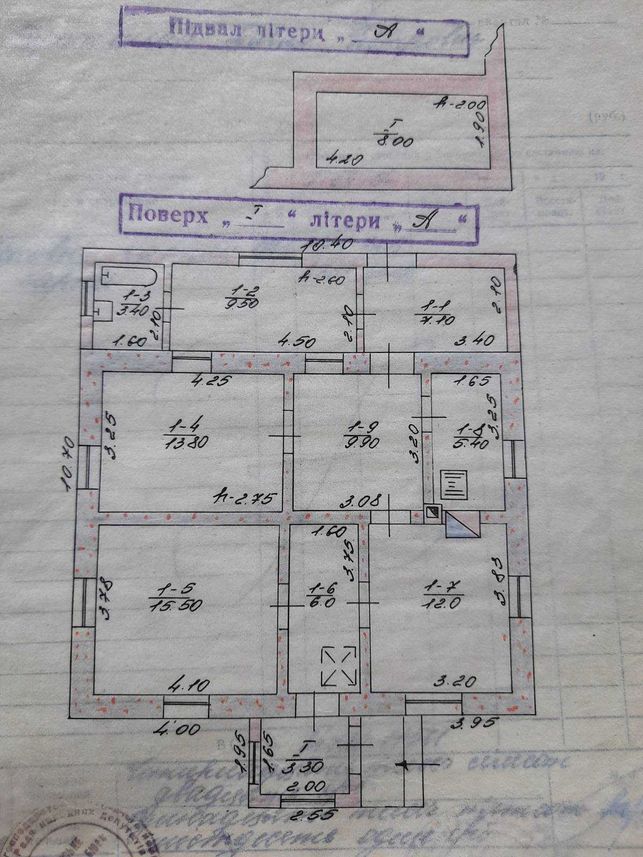 Підвал літери „ А “
h-2.00
I
8.00
1.90
4.20
Поверх „ I “ літери „ А “
10.40
1-3
3.40
1.60
2.10
1-2
9.50
h-2.60
4.50
2.10
1-1
7.10
2.10
3.40
4.25
1-4
13.80
3.25
h-2.75
10.70
1-9
9.90
3.20
3.08
1.65
1-8
5.40
3.25
1-5
15.50
3.78
4.10
4.00
1.60
3.75
1-6
6.0
1-7
12.0
3.83
3.20
3.95
1.95
1.65
I
3.30
2.00
2.55